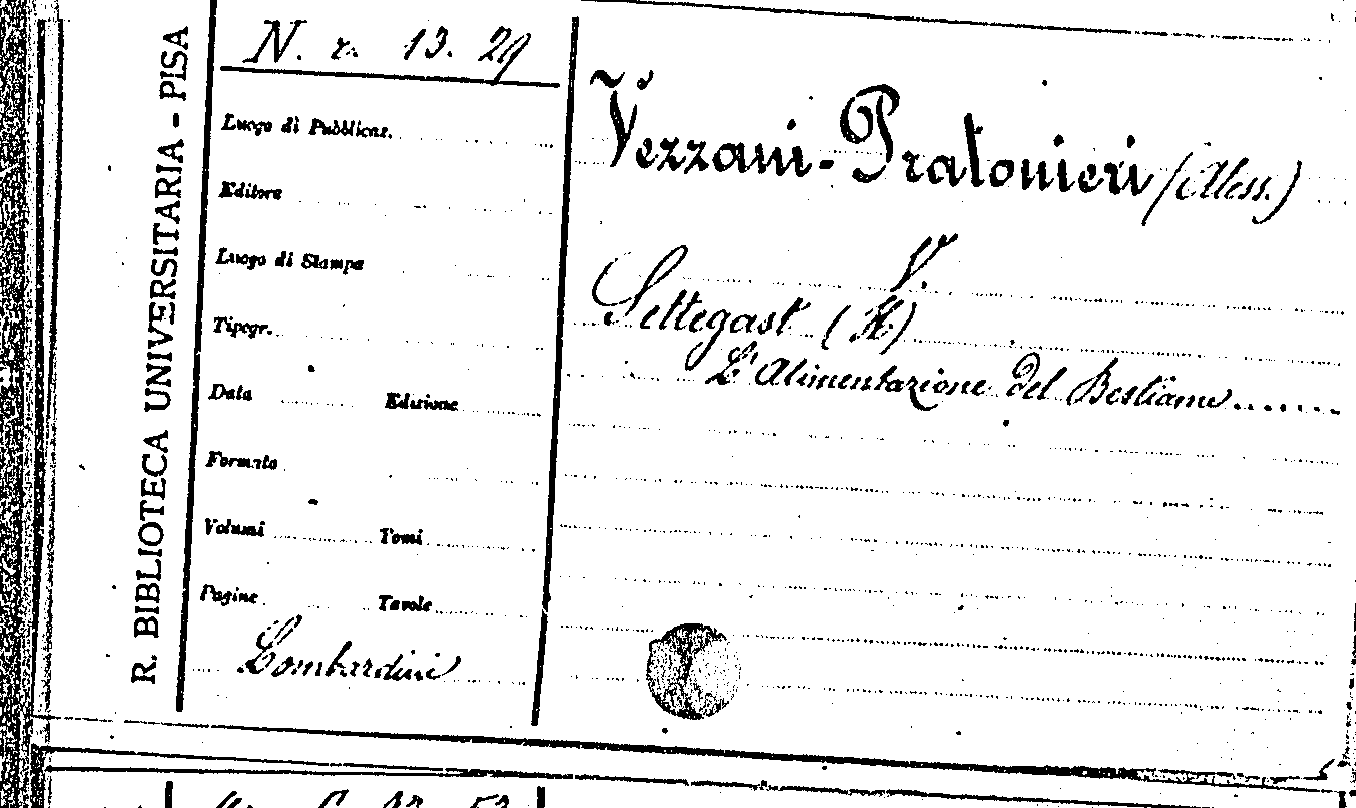 R. BIBLIOTECA UNIVERSITARIA - PISA
N. r. 13. 29
Luogo di Pubblicaz.
Editore
Luogo di Stampa
Tipogr.
Data Edizione
Formato
Volumi Tomi
Pagine Tavole
Lombardini
Vezzani-Pratonieri (Aless.)
V.
Settegast (H)
L'Alimentazione del Bestiame......